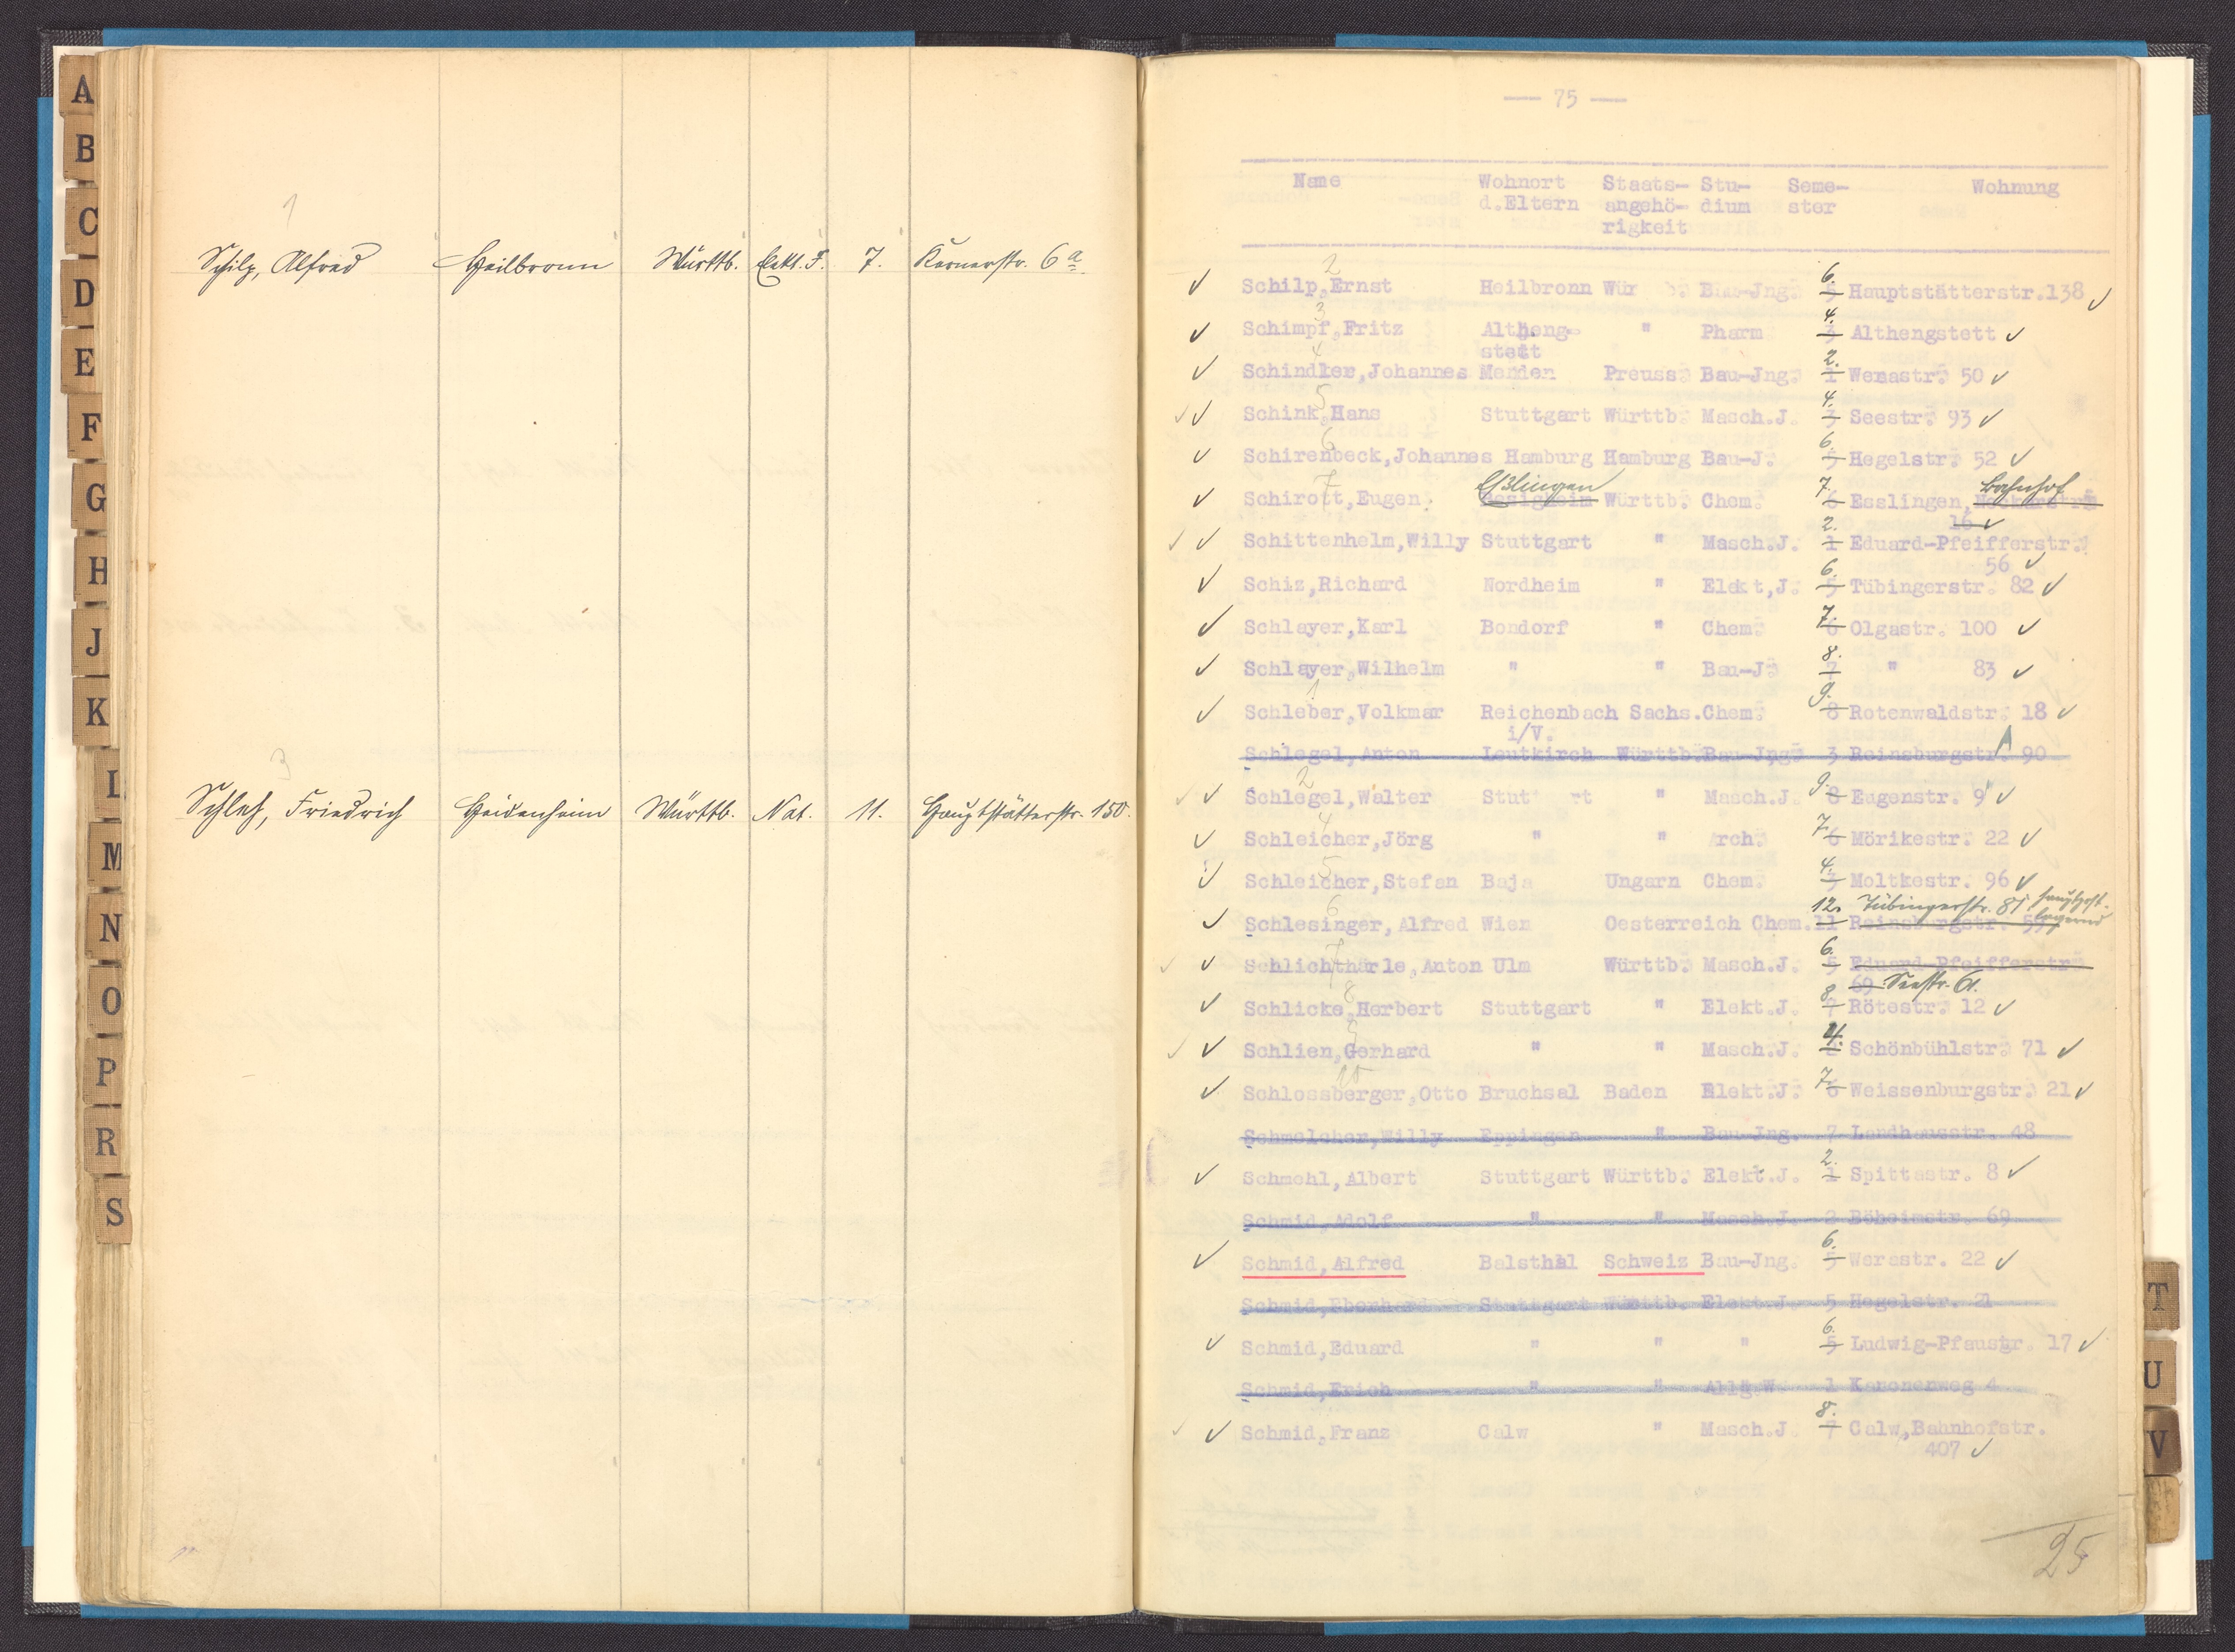 A
B
C
D
E
F
G
H
J
K
L
M
N
O
P
R
S
1
Schilp, Alfred Heilbronn Württb. Elekt. J. 7. Kernerstr. 6 a
3
Schleh, Friedrich Heidenheim Württb. Nat. 11. Hauptstätterstr. 150.
— 75 —
Name Wohnort Staats- Stu- Seme- Wohnung
d.Eltern angehö- dium ster
rigkeit
2 6.
Schilp,Ernst Heilbronn Wür Bau-Jng. 5 Hauptstätterstr.138
3 4.
Schimpf,Fritz Altheng- " Pharm 3 Althengstett
stett
4 2.
Schindler,Johannes Menden Preuss. Bau-Jng. 1 Werastr. 50
5 4.
Schink,Hans Stuttgart Württb. Masch.J. 3 Seestr. 93
6 6.
Schirenbeck,Johannes Hamburg Hamburg Bau-J. 5 Hegelstr. 52
7 Eßlingen 7. Bahnhof
Schirott,Eugen Besigheim Württb. Chem. 6 Esslingen, Neckarstr.
16
2.
Schittenhelm,Willy Stuttgart " Masch.J. 1 Eduard-Pfeifferstr.
56
6.
Schiz,Richard Nordheim " Elekt,J. 5 Tübingerstr. 82
7.
Schlayer,Karl Bondorf " Chem. 6 Olgastr. 100
8.
Schlayer,Wilhelm " " Bau-J. 7 " 83
1 9.
Schleber,Volkmar Reichenbach Sachs.Chem. 8 Rotenwaldstr. 18
i/V.
Schlegel,Anton Leutkirch Württb.Bau-Jng. 3 Reinsburgstr. 90
2 9.
Schlegel,Walter Stut rt " Masch.J. 8 Eugenstr. 9
4 7.
Schleicher,Jörg " " Arch. 6 Mörikestr. 22
5 4.
Schleicher,Stefan Baja Ungarn Chem. 3 Moltkestr. 96
6 12. Tübingerstr. 87 hauptpost-
lagernd
Schlesinger,Alfred Wien Oesterreich Chem. 11 Reinsburgstr. 59
7 6.
Schlichthärle,Anton Ulm Württb. Masch.J. 5 Eduard-Pfeifferstr.
69 Seestr. 61.
8 8
Schlicke,Herbert Stuttgart " Elekt.J. 7 Rötestr. 12
9 4.
Schlien,Gerhard " " Masch.J. Schönbühlstr. 71
10 7.
Schlossberger,Otto Bruchsal Baden Elekt.J. 6 Weissenburgstr. 21
Schmelcher,Willy Eppingen " Bau-Jng. 7 Landhausstr. 48
2.
Schmehl,Albert Stuttgart Württb. Elekt.J. 1 Spittastr. 8
Schmid,Adolf " " Masch.J. 2 Böheimstr. 69
6.
Schmid,Alfred Balsthal Schweiz Bau-Jng. 5 Werastr. 22
Schmid,Eberhard Stuttgart Württb. Elekt.J. 5 Hegelstr. 21
6.
Schmid,Eduard " " " 5 Ludwig-Pfaustr. 17
Schmid,Erich " " Allg.W. 1 Kanonenweg 4
8.
Schmid,Franz Calw " Masch.J 7 Calw,Bahnhofstr.
407
25
T
U
V